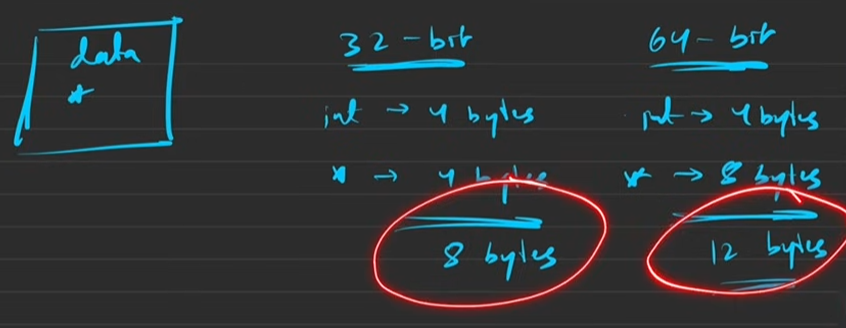 data
*
32-bit
int → 4 bytes
* → 4 bytes
8 bytes
64-bit
int → 4 bytes
* → 8 bytes
12 bytes